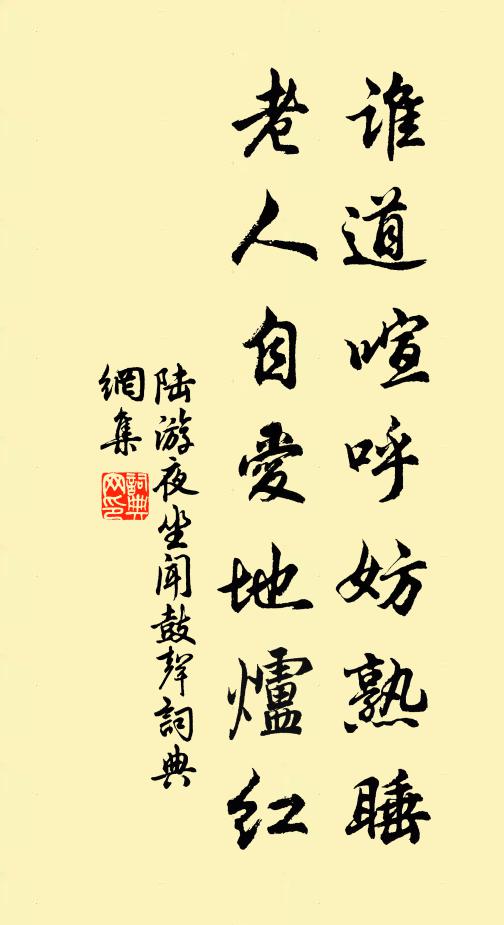 谁道喧呼妨熟睡
老人自愛地爐红
陆游夜坐闻鼓聲詞典
網集
詞典
网印